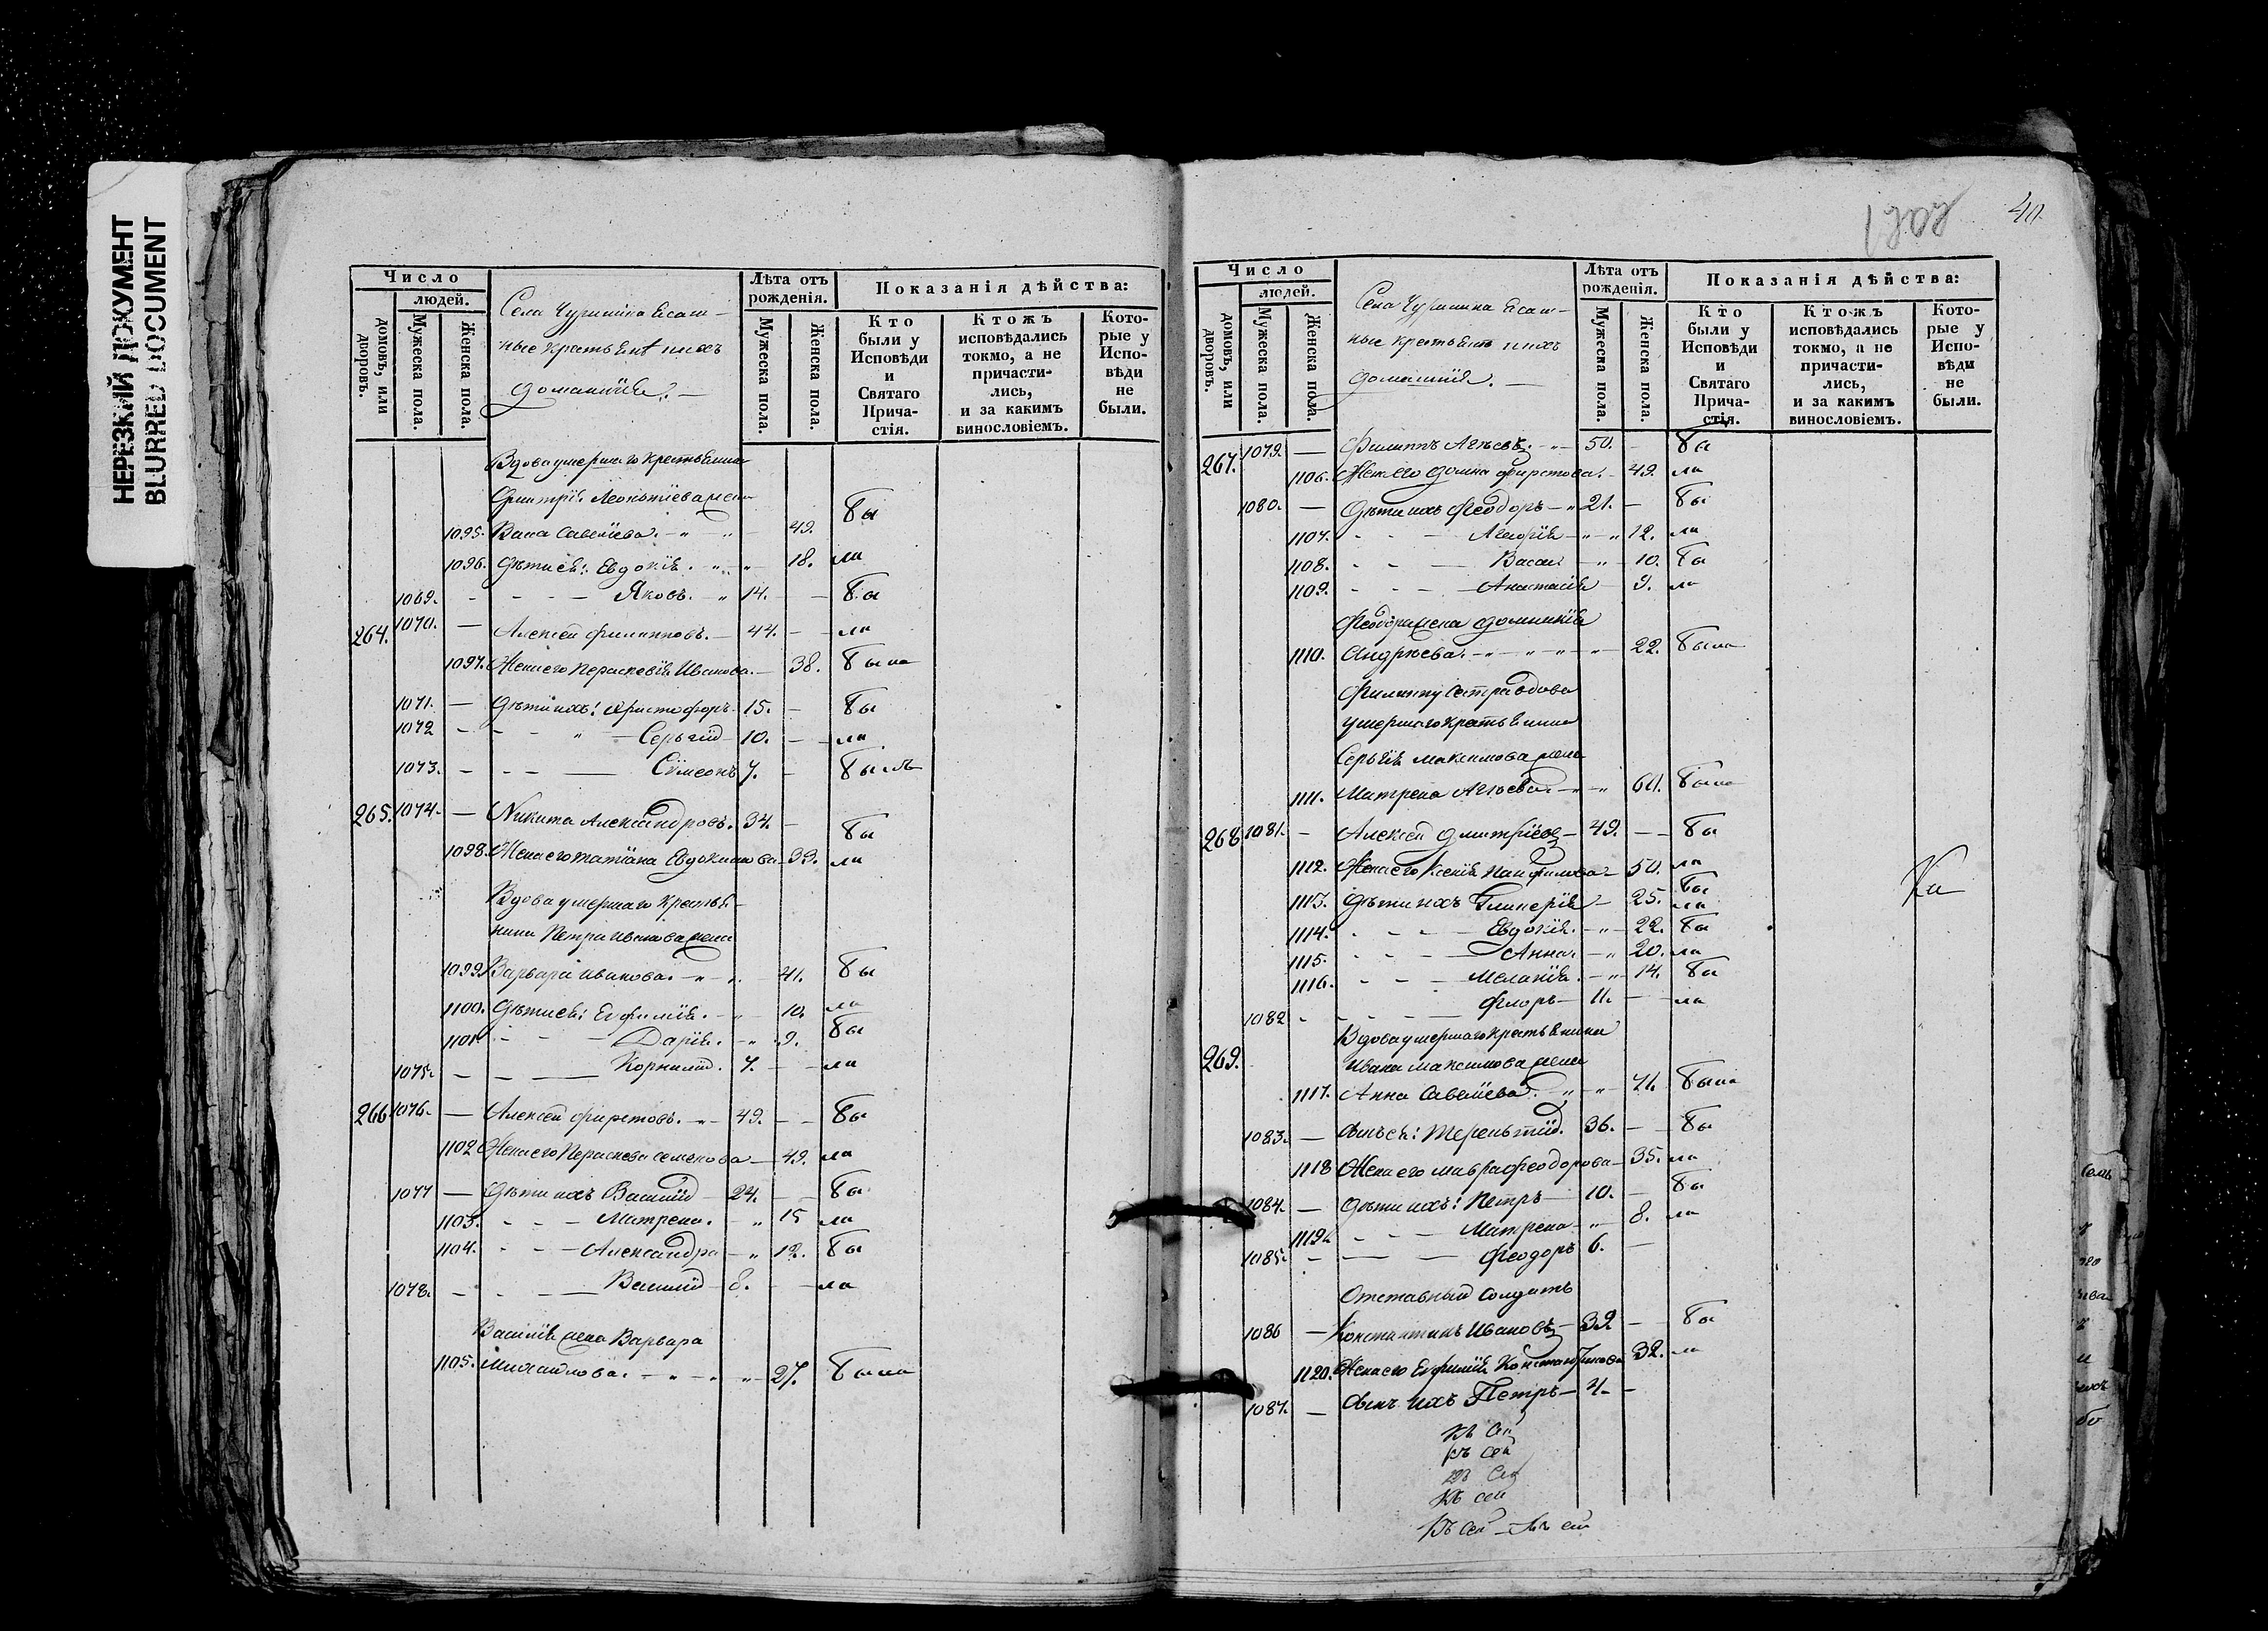 НЕРЕЗКИЙ ДОКУМЕНТ
BLURRED DOCUMENT
Число
людей.
домовъ, или дворовъ.
Мужеска пола.
Женска пола.
Села Чуринина Ясаш-
ные крестьяне и ихъ
домашнія.
Лѣта отъ рожденія.
Мужеска пола.
Женска пола.
Показанія дѣйства:
Кто были у Исповѣди и Святаго Прича-стія.
Ктожъ исповѣдались токмо, а не причасти-лись, и за какимъ винословіемъ.
Кото-рые у Испо-вѣди не были.
Вдова умершаго крестьянина
Дмитрія Леонтіева жена
1095. Васа Савелієва. 49. бы
1096. Дѣти ея: Евдокія. 18. ла
1069. Яковъ. 14. бы
264. 1070. Алексей Филипповъ. 44. ла
1097. Жена его Параскевія Иванова. 38. была
1071. Дѣти ихъ: Христофоръ 15. бы
1072 Сергій 10. ла
1073. Сѵмеонъ 7. былъ
265. 1074. Никита Александровъ. 34. бы
1098. Жена его Татіана Евдокимова 33. ла
Вдова умершаго крестья-
нина Петра Иванова жена
1099. Варвара Иванова. 41. бы
1100. Дѣти ея: Евфимія. 10. ла
1101 Дарія. 9. бы
1075. Корнилій. 7. ла
266 1076. Алексей Фирстовъ. 49. бы
1102 Жена его Параскева Семенова 49. ла
1077 Дѣти ихъ Василій 24. бы
1103. Матрена. 15 ла
1104. Александра 12. бы
1078. Василій 8. ла
Василія жена Варвара
1105. Михаилова. 27. была
40
Число
людей.
домовъ, или дворовъ.
Мужеска пола.
Женска пола.
Села Чуринина Ясаш-
ные крестьяне и ихъ
домашнія.
Лѣта отъ рожденія.
Мужеска пола.
Женска пола.
Показанія дѣйства:
Кто были у Исповѣди и Святаго Прича-стія.
Ктожъ исповѣдались токмо, а не причасти-лись, и за какимъ винословіемъ.
Кото-рые у Испо-вѣди не были.
267. 1079. Филиппъ Агѣевъ. 50. бы
1106. Жена его Домна Фирстова. 49. ла
1080. Дѣти ихъ Феодоръ 21. бы
1107. 12. ла
1108. Васса 10. бы
1109. Анастасія 9. ла
Феодора жена Домникія
1110. Андрѣева. 22. была
Филиппу сестра вдова
умершаго крестьянина
Сергѣя Максимова жена
1111. Матрена Агѣева. 60. была
268 1081. Алексей Дмитріевъ 49. бы
1112. Жена его Ксенія Панфилова 50. ла
1113. Дѣти ихъ Гликерія 25. бы ла
1114. Евдокія. 22. бы
1115. Анна. 20. ла
1116. Меланія. 14. бы
1082 Флоръ 11. ла
269. Вдова умершаго крестьянина
Ивана Максимова жена
1117. Анна Савелієва. 71. была
1083. Сынъ ея: Терентій. 36. бы
1118 Жена его Мавра Феодорова 35. ла
1084. Дѣти ихъ: Петръ 10. бы
1119. Матрена 8. ла
1085. Феодоръ 6.
Отставный солдатъ
1086 Константинъ Ивановъ 39 бы
1120. Жена его Евфимія Константинова 32. ла
1087. Сынъ ихъ Петръ 4.
Ка
Къ сей
Къ сей
Къ сей
Къ сей
Къ сей Къ сей